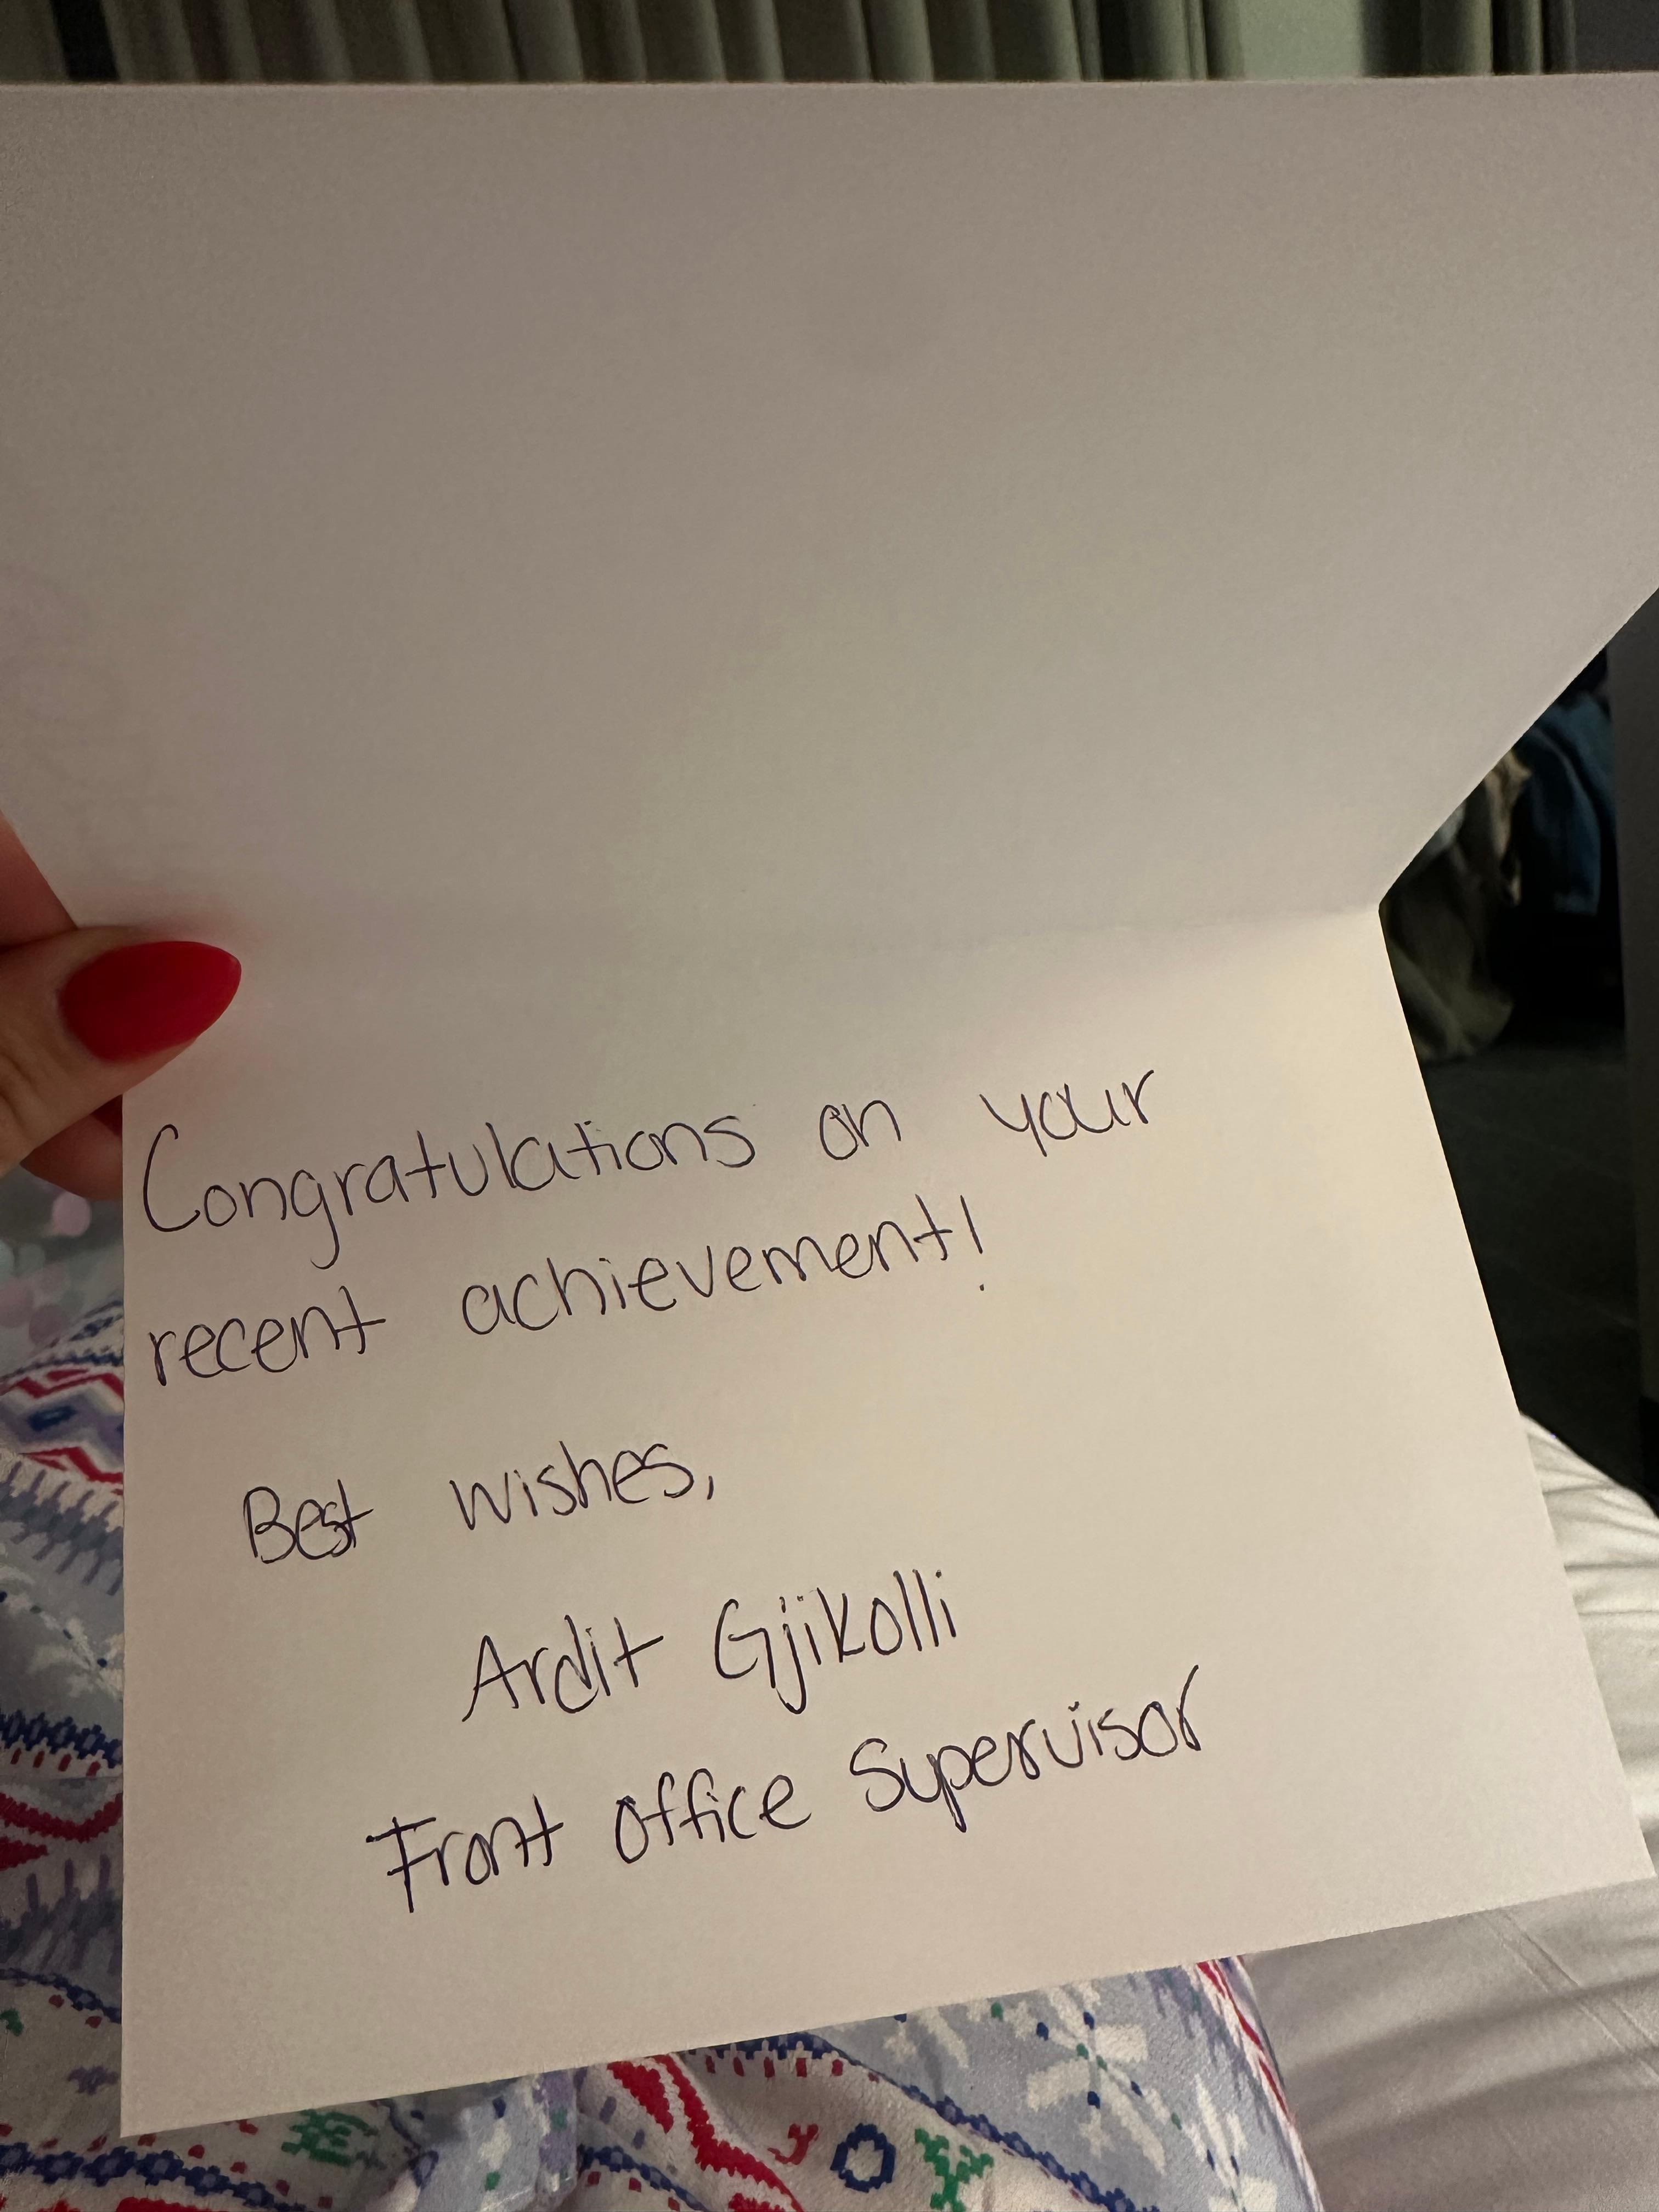 Congratulations on your
recent achievement!
Best wishes,
Ardit Gjikolli
Front Office Supervisor
JOY